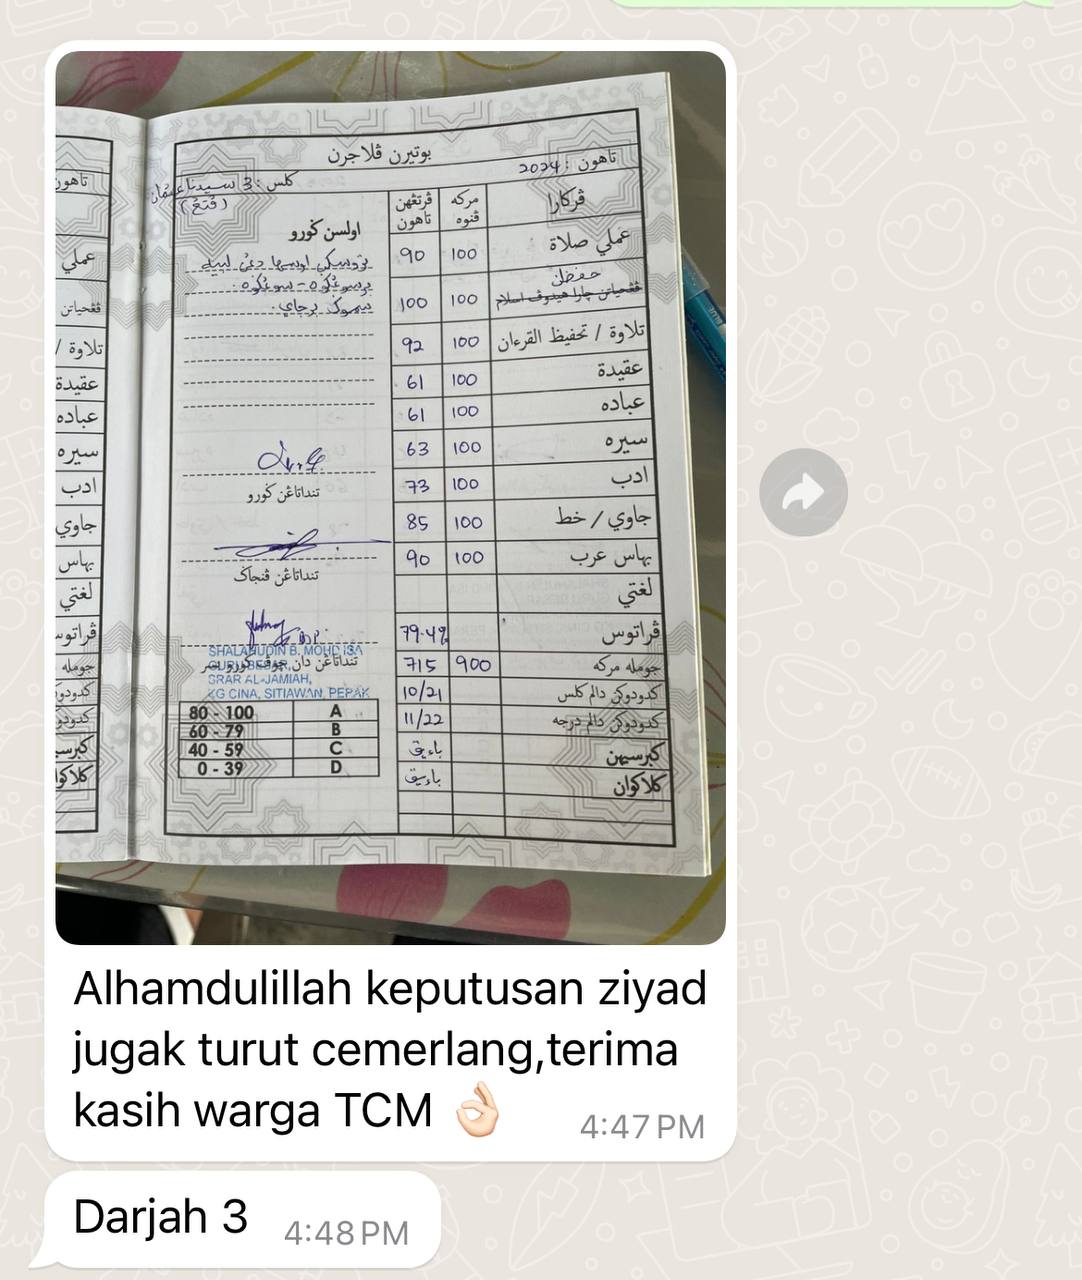 بوتيرن ڤلاجرن
تاهون : 2024
كلس : 3 سيدنا عثمان
(ڤتڠ)
ڤركارا
مركه ڤنوه
ڤرتڠهن تاهون
اولسن ݢورو
عملي صلاة 100 90
حفظن
ڤڠحياتن چارا هيدوڤ اسلام 100 100
تلاوة / تحفيظ القرءان 100 92
عقيدة 100 61
عباده 100 61
سيره 100 63
ادب 100 73
جاوي / خط 100 85
بهاس عرب 100 90
لغتي
ڤراتوس 79.4%
جومله مركه 900 715
كدودوكن دالم كلس 10/21
كدودوكن دالم درجه 11/22
كبرسيهن باءيق
كلاكوان باءيق
برسوڠݢوه - سوڠݢوه.
سموݢ برجاي.
تنداتاڠن ݢورو
تنداتاڠن ڤنجاݢ
تنداتاڠن دان چوڤ ݢورو بسر
SHALAHUDIN B. MOHD ISA
GURU BESAR,
SRAR AL-JAMIAH,
KG CINA, SITIAWAN, PERAK
80 - 100 A
60 - 79 B
40 - 59 C
0 - 39 D
تاهون
عملي
ڤڠحياتن
تلاوة /
عقيدة
عباده
سيره
ادب
جاوي
بهاس
لغتي
ڤراتوس
جومله
Alhamdulillah keputusan ziyad
jugak turut cemerlang,terima
kasih warga TCM 👌🏻
4:47 PM
Darjah 3
4:48 PM